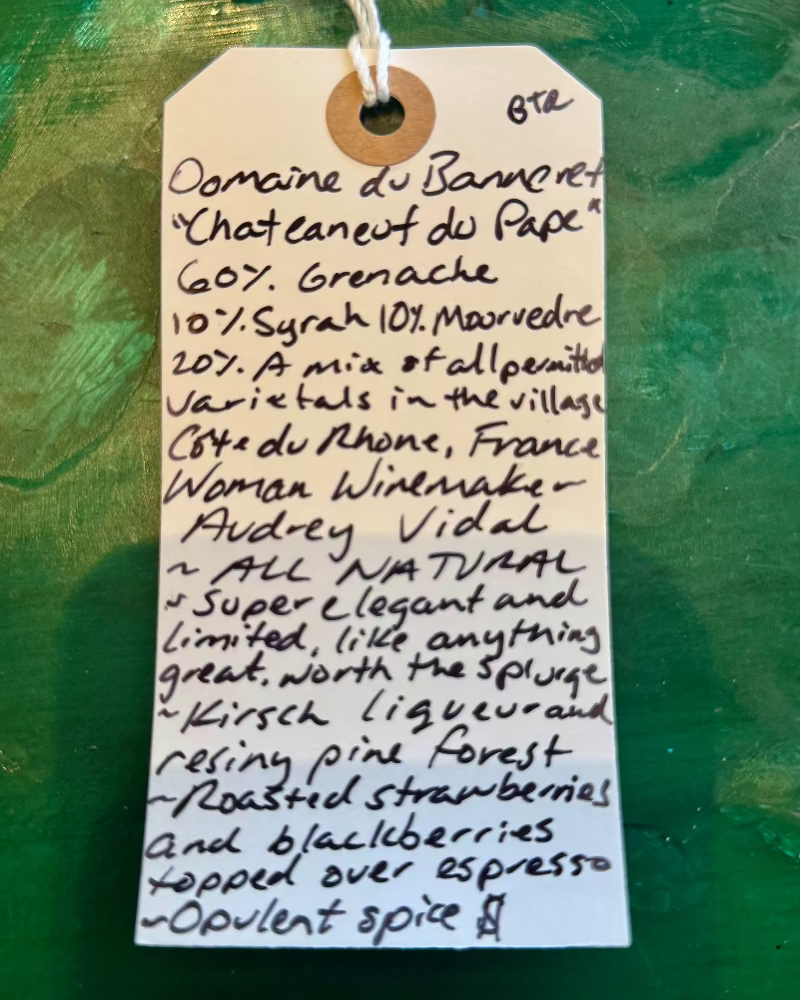 BTR
Domaine du Banneret
"Chateaneuf du Pape"
60% Grenache
10% Syrah 10% Moorvedre
20% A mix of all permitted
varietals in the village
Côte du Rhone, France
Woman Winemaker
Audrey Vidal
~ ALL NATURAL
~ Super elegant and
limited, like anything
great. worth the splurge
~Kirsch liqueur and
resiny pine forest
~Roasted strawberries
and blackberries
topped over espresso
~Opulent spice